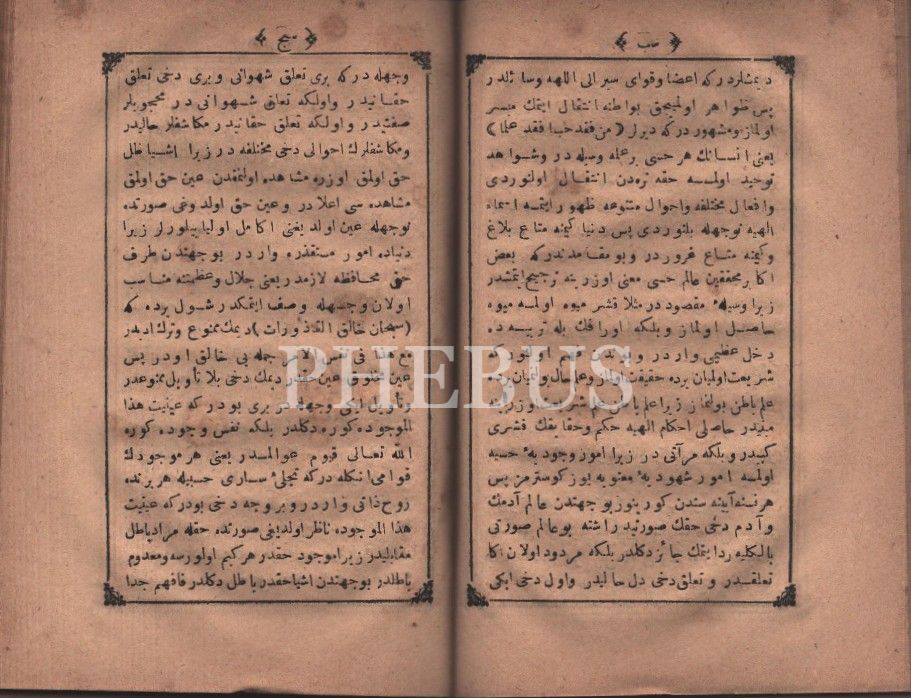 ﴿ سب ﴾
دیمشلردر که اعضا و قوای سیر الی اللهه وسائلدر
پس ظواهر اولمیجق بواطنه انتقال ایتمك میسر
اولماز و مشهور در که دیرلر ( من فقد حسا فقد علما )
یعنی انسانك هر حسی بر علمه وسیله در و شواهد
توحید اولمسه حقه نره دن انتقال اولنوردی
و افعال مختلفه و احوال متنوعه ظهور ایتمسه اسماء
الهیه نوجهله بلنوردی پس دنیا کیمنه متاع بلاغ
و کیمنه متاع غروردر و بو مقامدندر که بعض
اکابر محققین عالم حسی معنی اوزرینه ترجیح ایتمشدر
زیرا وسیلهٔ مقصود در مثلا قشر میوه اولمسه میوه
حاصل اولماز و بلکه اوراقك بله تربیه ده
دخل عظیمی واردر و بوندن فهم اولنور که
شریعت اولمیان یرده حقیقت اولماز و علم حال اولمیان یرده
علم باطن بولنماز زیرا علم باطن علم شریعت اوزرینه
مبنیدر حاصلی احکام الهیه حکم و حقایقك قشری
کبیدر و بلکه مرآتی در زیرا امور وجودیهٔ حسیه
اولمسه امور شهودیهٔ معنویه یوز کوسترمز پس
هر نسنه آیینه سندن کورینور بو جهتدن عالم آدمك
و آدم دخی حقك صورتیدر اشته بو عالم صورتی
بالکلیه رد ایتمك جائز دکلدر بلکه مردود اولان اکا
تعلقدر و تعلق دخی دل حالیدر و اول دخی ایکی
﴿ سج ﴾
وجهله در که بری تعلق شهوانی و بری دخی تعلق
حقانیدر و اولکه تعلق شهوانی در محجوبلر
صفتیدر و اولکه تعلق حقانیدر مکاشفلر حالیدر
و مکاشفلرك احوالی دخی مختلفه در زیرا اشیا ظل
حق اولمق اوزره مشاهده اولنمقدن عین حق اولمق
مشاهده سی اعلادر و عین حق اولدوغی صورتده
نوجهله عین اولد یغنی اکامل اولیا بیلورلر زیرا
دنیاده امور مستقذره واردر بو جهتدن طرف
حق محافظه لازمدر یعنی جلال و عظمتنه مناسب
اولان وجهله وصف ایتمکدر شول یرده که
( سبحان خالق القذورات ) دیمك ممنوع و ترك ادبدر
مع هذا فی نفس الامر جمله یی خالق اودر پس
عین مخلوق عین حقدر دیمك دخی بلا تأویل ممنوعدر
و تأویل ایکی وجهله در بری بودر که عینیت هذا
الموجوده کوره دکلدر بلکه نفس وجوده کوره
الله تعالی قیوم عوالمدر یعنی هر موجودك
قوامی انکله در که تجلئ ساری حسبیله هر برنده
روح ذاتی واردر و بر وجه دخی بودر که عینیت
هذا الموجوده ناظر اولدیغی صورتده حقله مراد باطل
مقابلیدر زیرا موجود حقدر هر کیم اولورسه و معدوم
باطلدر بو جهتدن اشیا حقدر باطل دکلدر فافهم جدا
PHEBUS